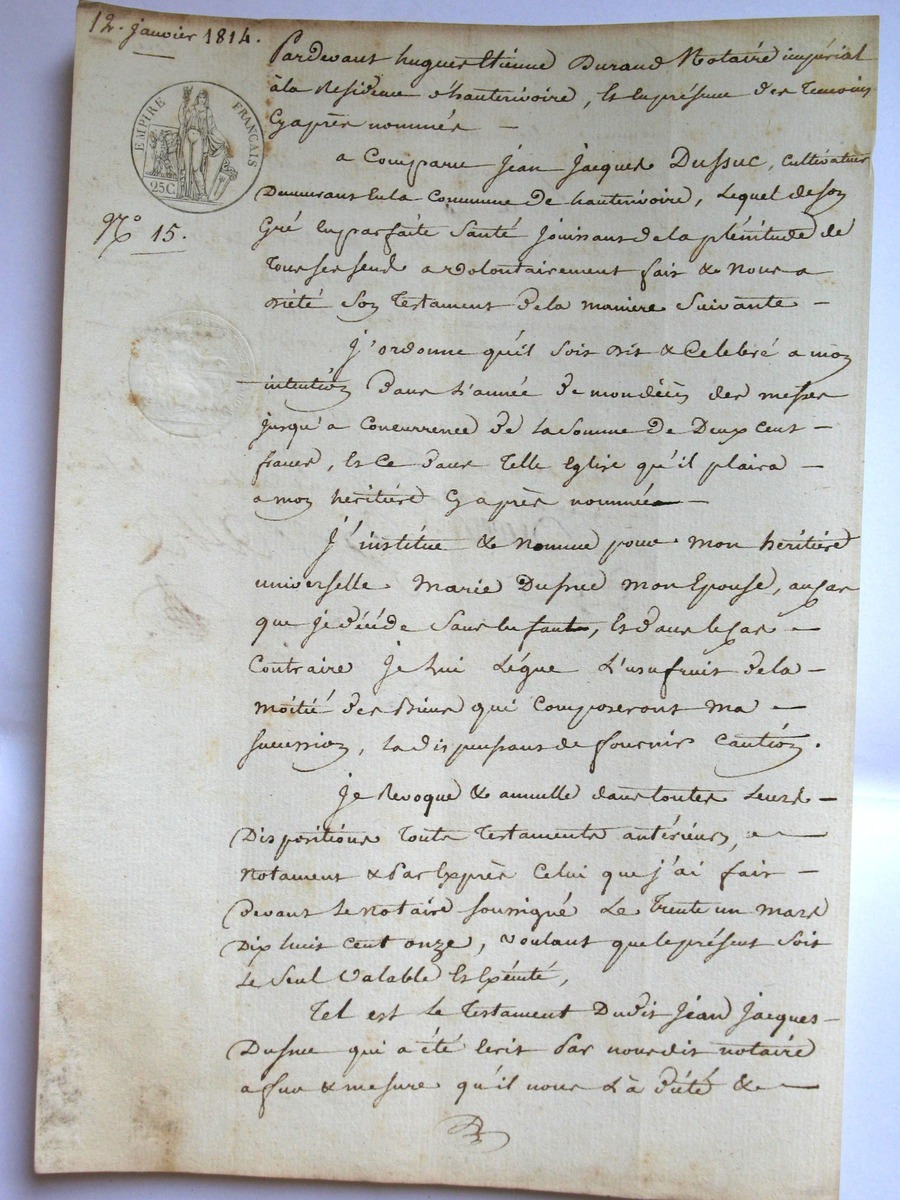 12. janvier 1814.
EMPIRE FRANÇAIS
25C.
N.º 15.
Pardevant hugues Etienne Durand Notaire impérial
à la Residence d'hauterivoire, Et en présence des temoins
Cyaprès nommés —
a Comparu Jean Jacques Dussuc, Cultivateur
Demeurant En la Commune de hauterivoire, Lequel de son
Gré En parfaite Santé Jouissant de la plénitude de
Tous ses sens a volontairement fait & Nous a
dicté Son Testament de la maniere Suivante —
J'ordonne qu'il soit dit & Celebré a mon
intention Dans L'année de mon décès des messes
jusqu'a Concurrence de La Somme de Deux Cent —
francs, Et Ce dans Telle Eglise qu'il plaira —
a mon heritière Cyaprès nommée —
J'institue & Nomme pour mon heritière
universelle Marie Dussuc mon Epouse, au Cas
que je décède Sans Enfants, Et dans le Cas —
Contraire Je Lui Lègue L'usufruit de la —
Moitié des Biens qui Composeront Ma —
succession, La dispensant de fournir Caution.
Je Revoque & annulle dans toutes Leurs —
Dispositions Touts Testaments antérieurs, —
Notament & Par Exprès Celui que j'ai fait —
Devant Le Notaire soussigné Le Trente un mars
Dix huit Cent onze, voulant que le présent Soit
Le Seul Valable Et Exécuté,
Tel est Le Testament Dudit Jean Jacques —
Dussuc qui a été Ecrit Par nousdit notaire
a fur & mesure qu'il nous L'a dicté & —